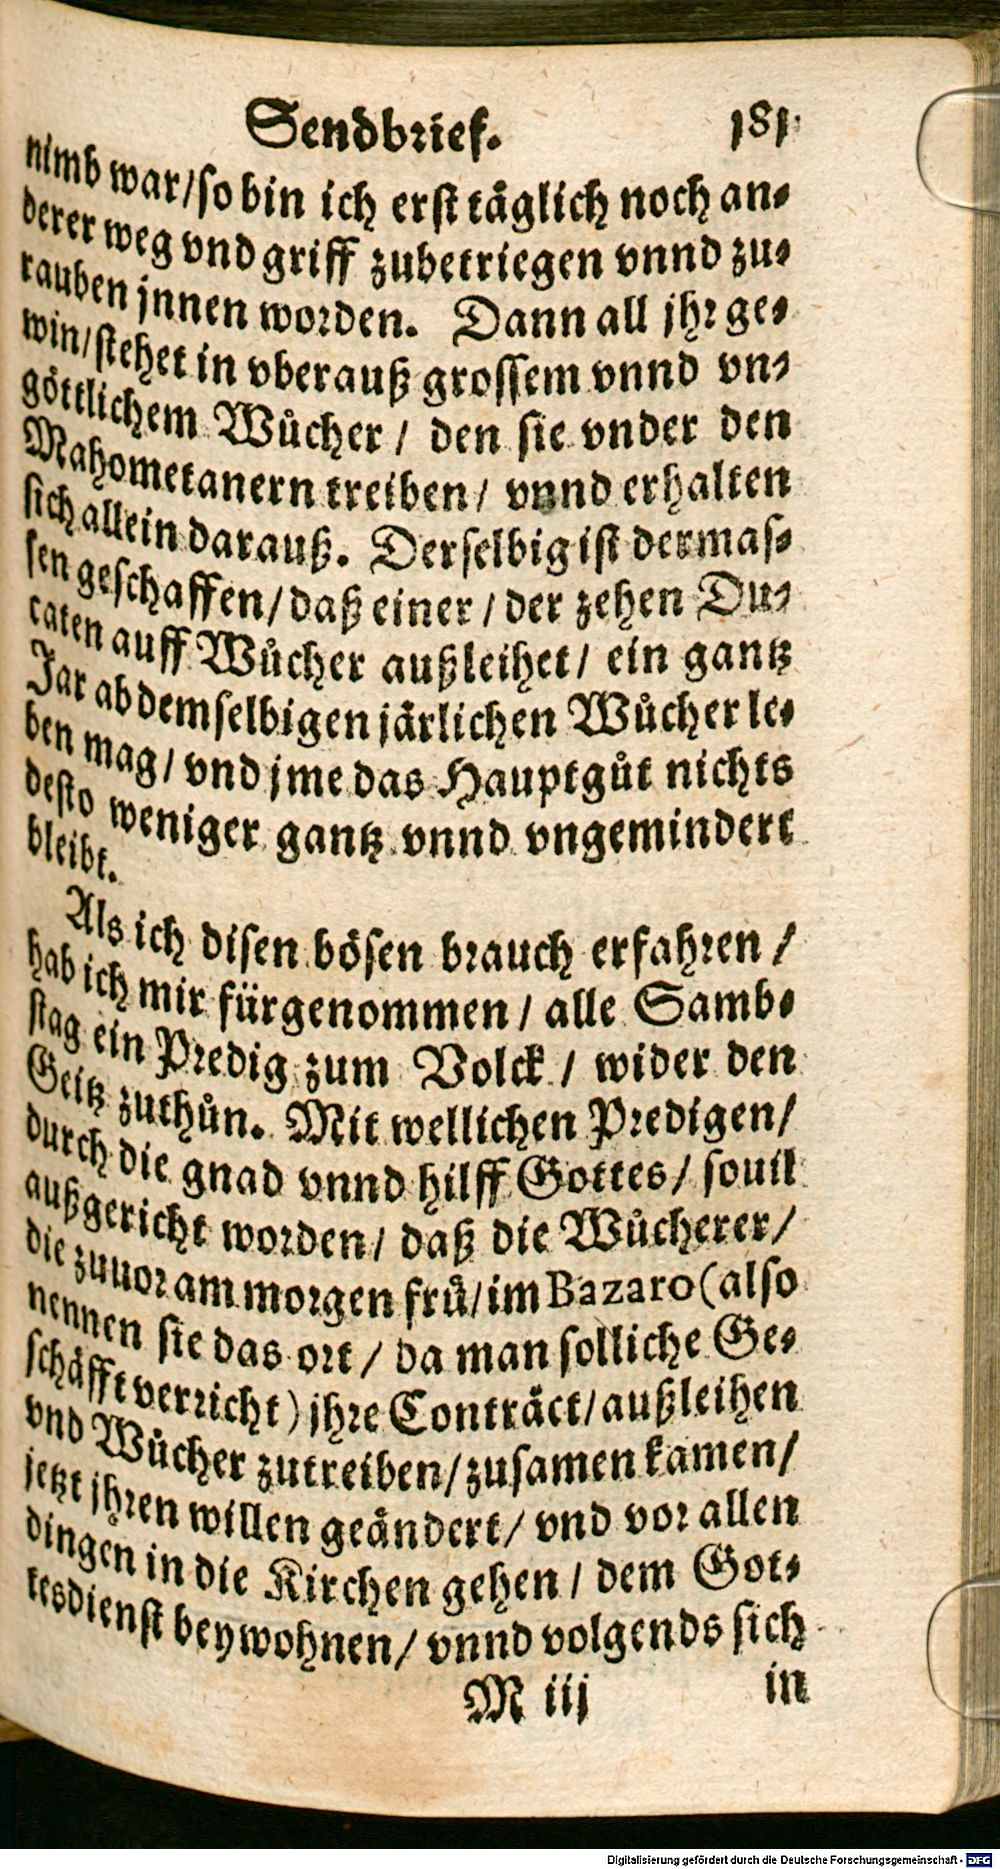 Sendbrief. 181
nimb war/so bin ich erst täglich noch an-
derer weg vnd griff zubetriegen vnnd zu-
rauben jnnen worden. Dann all jhr ge-
win/stehet in vberauß grossem vnnd vn-
göttlichem Wůcher / den sie vnder den
Mahometanern treiben/ vnnd erhalten
sich allein darauß. Derselbig ist dermas-
sen geschaffen/daß einer / der zehen Du-
caten auff Wůcher außleihet/ ein gantz
Jar ab demselbigen järlichen Wůcher le-
ben mag/ vnd jme das Hauptgůt nichts
desto weniger gantz vnnd vngemindert
bleibt.
Als ich disen bösen brauch erfahren /
hab ich mir fürgenommen / alle Samb-
stag ein Predig zum Volck / wider den
Geitz zuthůn. Mit wellichen Predigen/
durch die gnad vnnd hilff Gottes/ souil
außgericht worden/ daß die Wůcherer/
die zuuor am morgen frů/im Bazaro (also
nennen sie das ort / da man solliche Ge-
schäfft verricht) jhre Conträct/außleihen
vnd Wůcher zutreiben/zusamen kamen/
jetzt jhren willen geändert/ vnd vor allen
dingen in die Kirchen gehen / dem Got-
tesdienst beywohnen/ vnnd volgends sich
M iij in
Digitalisierung gefördert durch die Deutsche Forschungsgemeinschaft - DFG